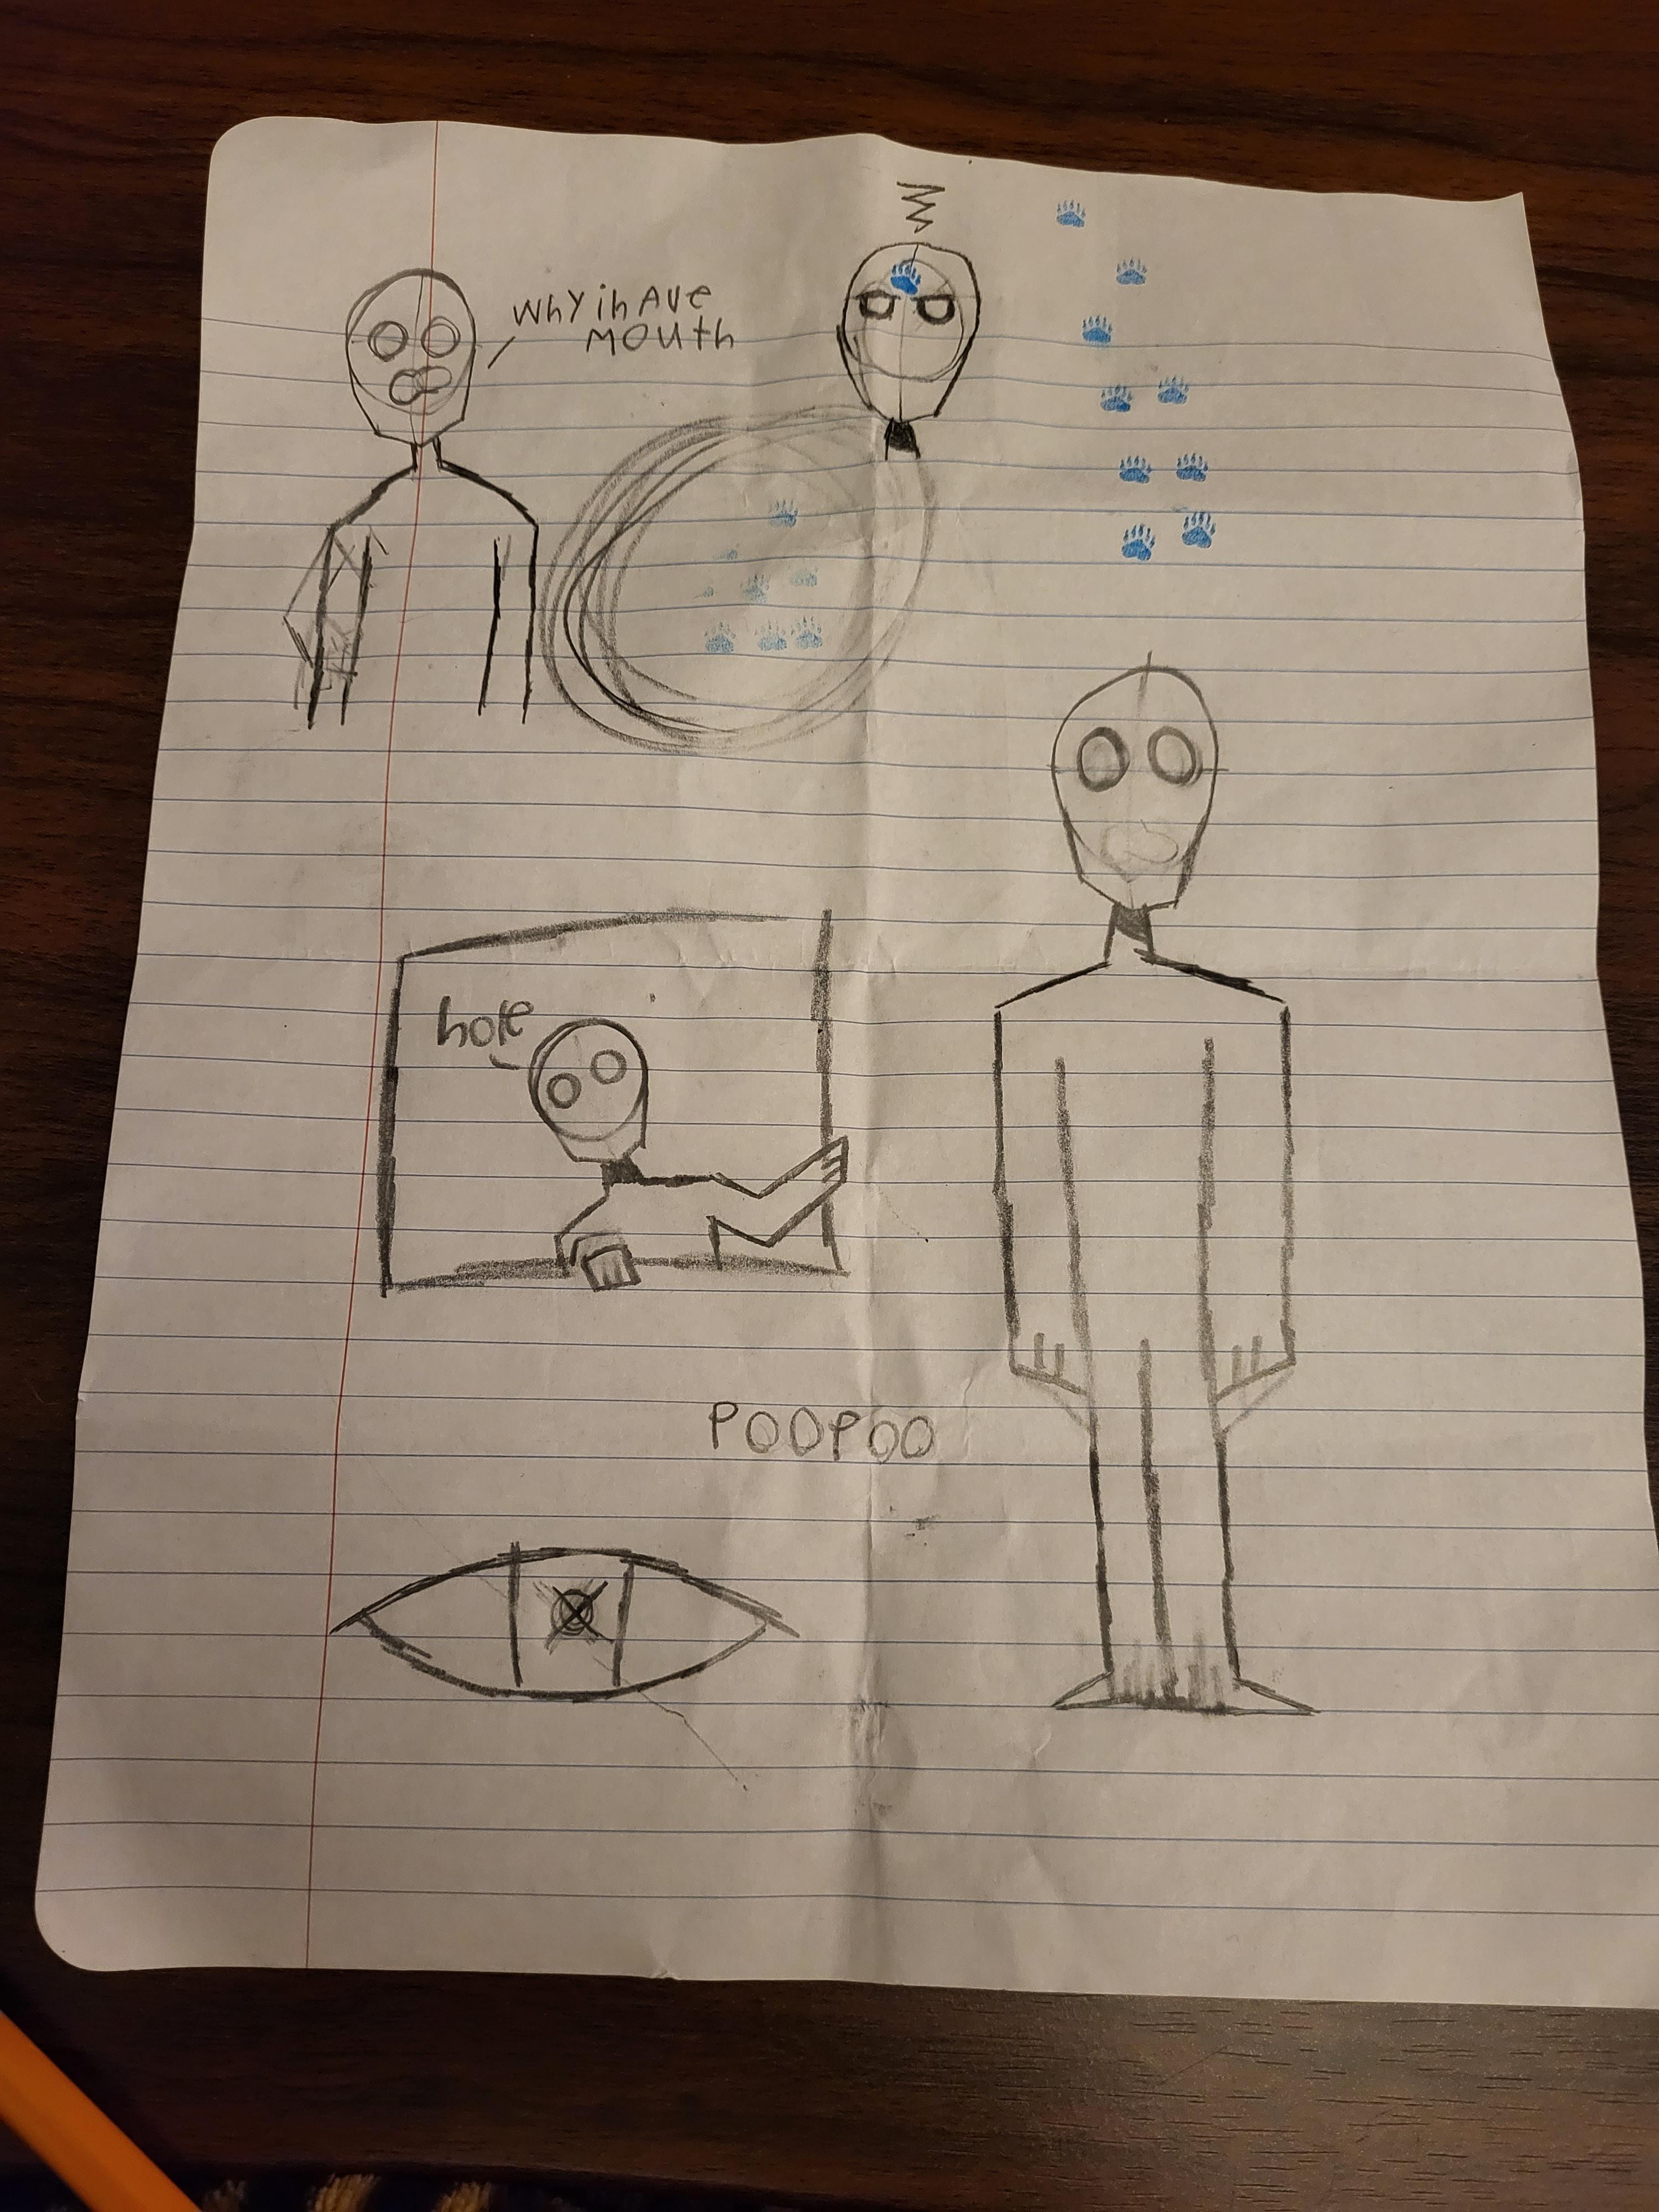 why ihAve
mouth
hole
POOPOO